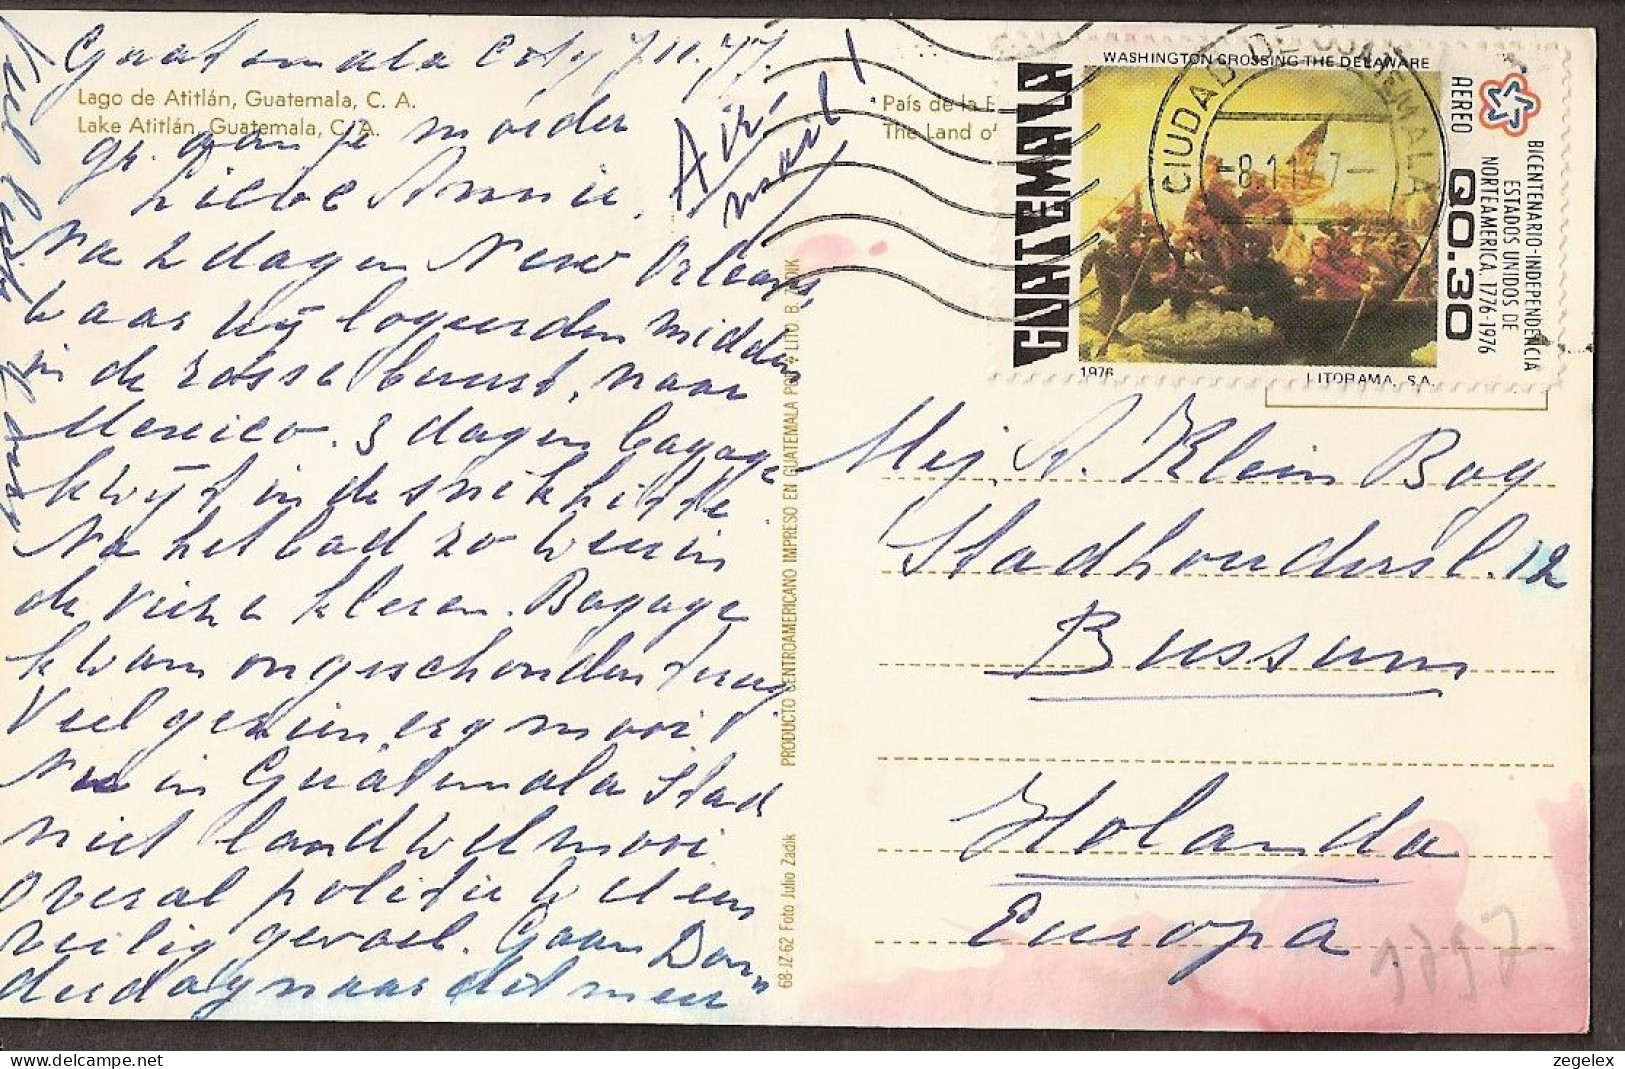 Guatemala City 7.11.77.
Lago de Atitlán, Guatemala, C. A.
Lake Atitlán, Guatemala, C. A.
Lieve Annie,
Air
mail!
Na 2 dagen New Orleans,
waar wij logeerden midden
in de rosse buurt, naar
Mexico. 3 dagen bagage
kwijt in de snikhitte.
Na het bad zo weer in
de vieze kleren. Bagage
kwam ongeschonden terug
Veel gezien, erg mooi!
Nu in Guatemala Stad
niet land wel mooi
Overal politie wel een
veilig gevoel. Gaan Don-
derdag naar het meer
País de la E
The Land o'
PRODUCTO CENTROAMERICANO IMPRESO EN GUATEMALA POR LITO. B. ZADIK
68-JZ-62 Foto Julio Zadik
WASHINGTON CROSSING THE DELAWARE
GUATEMALA
AEREO Q0.30
BICENTENARIO-INDEPENDENCIA
ESTADOS UNIDOS DE
NORTEAMERICA, 1776-1976
1976 LITORAMA, S.A.
CIUDAD DE GUATEMALA
-8.11.77-
Mej. A. Klein Bog
Stadhoudersl. 12
Bussum
Holanda
Europa
zegelex